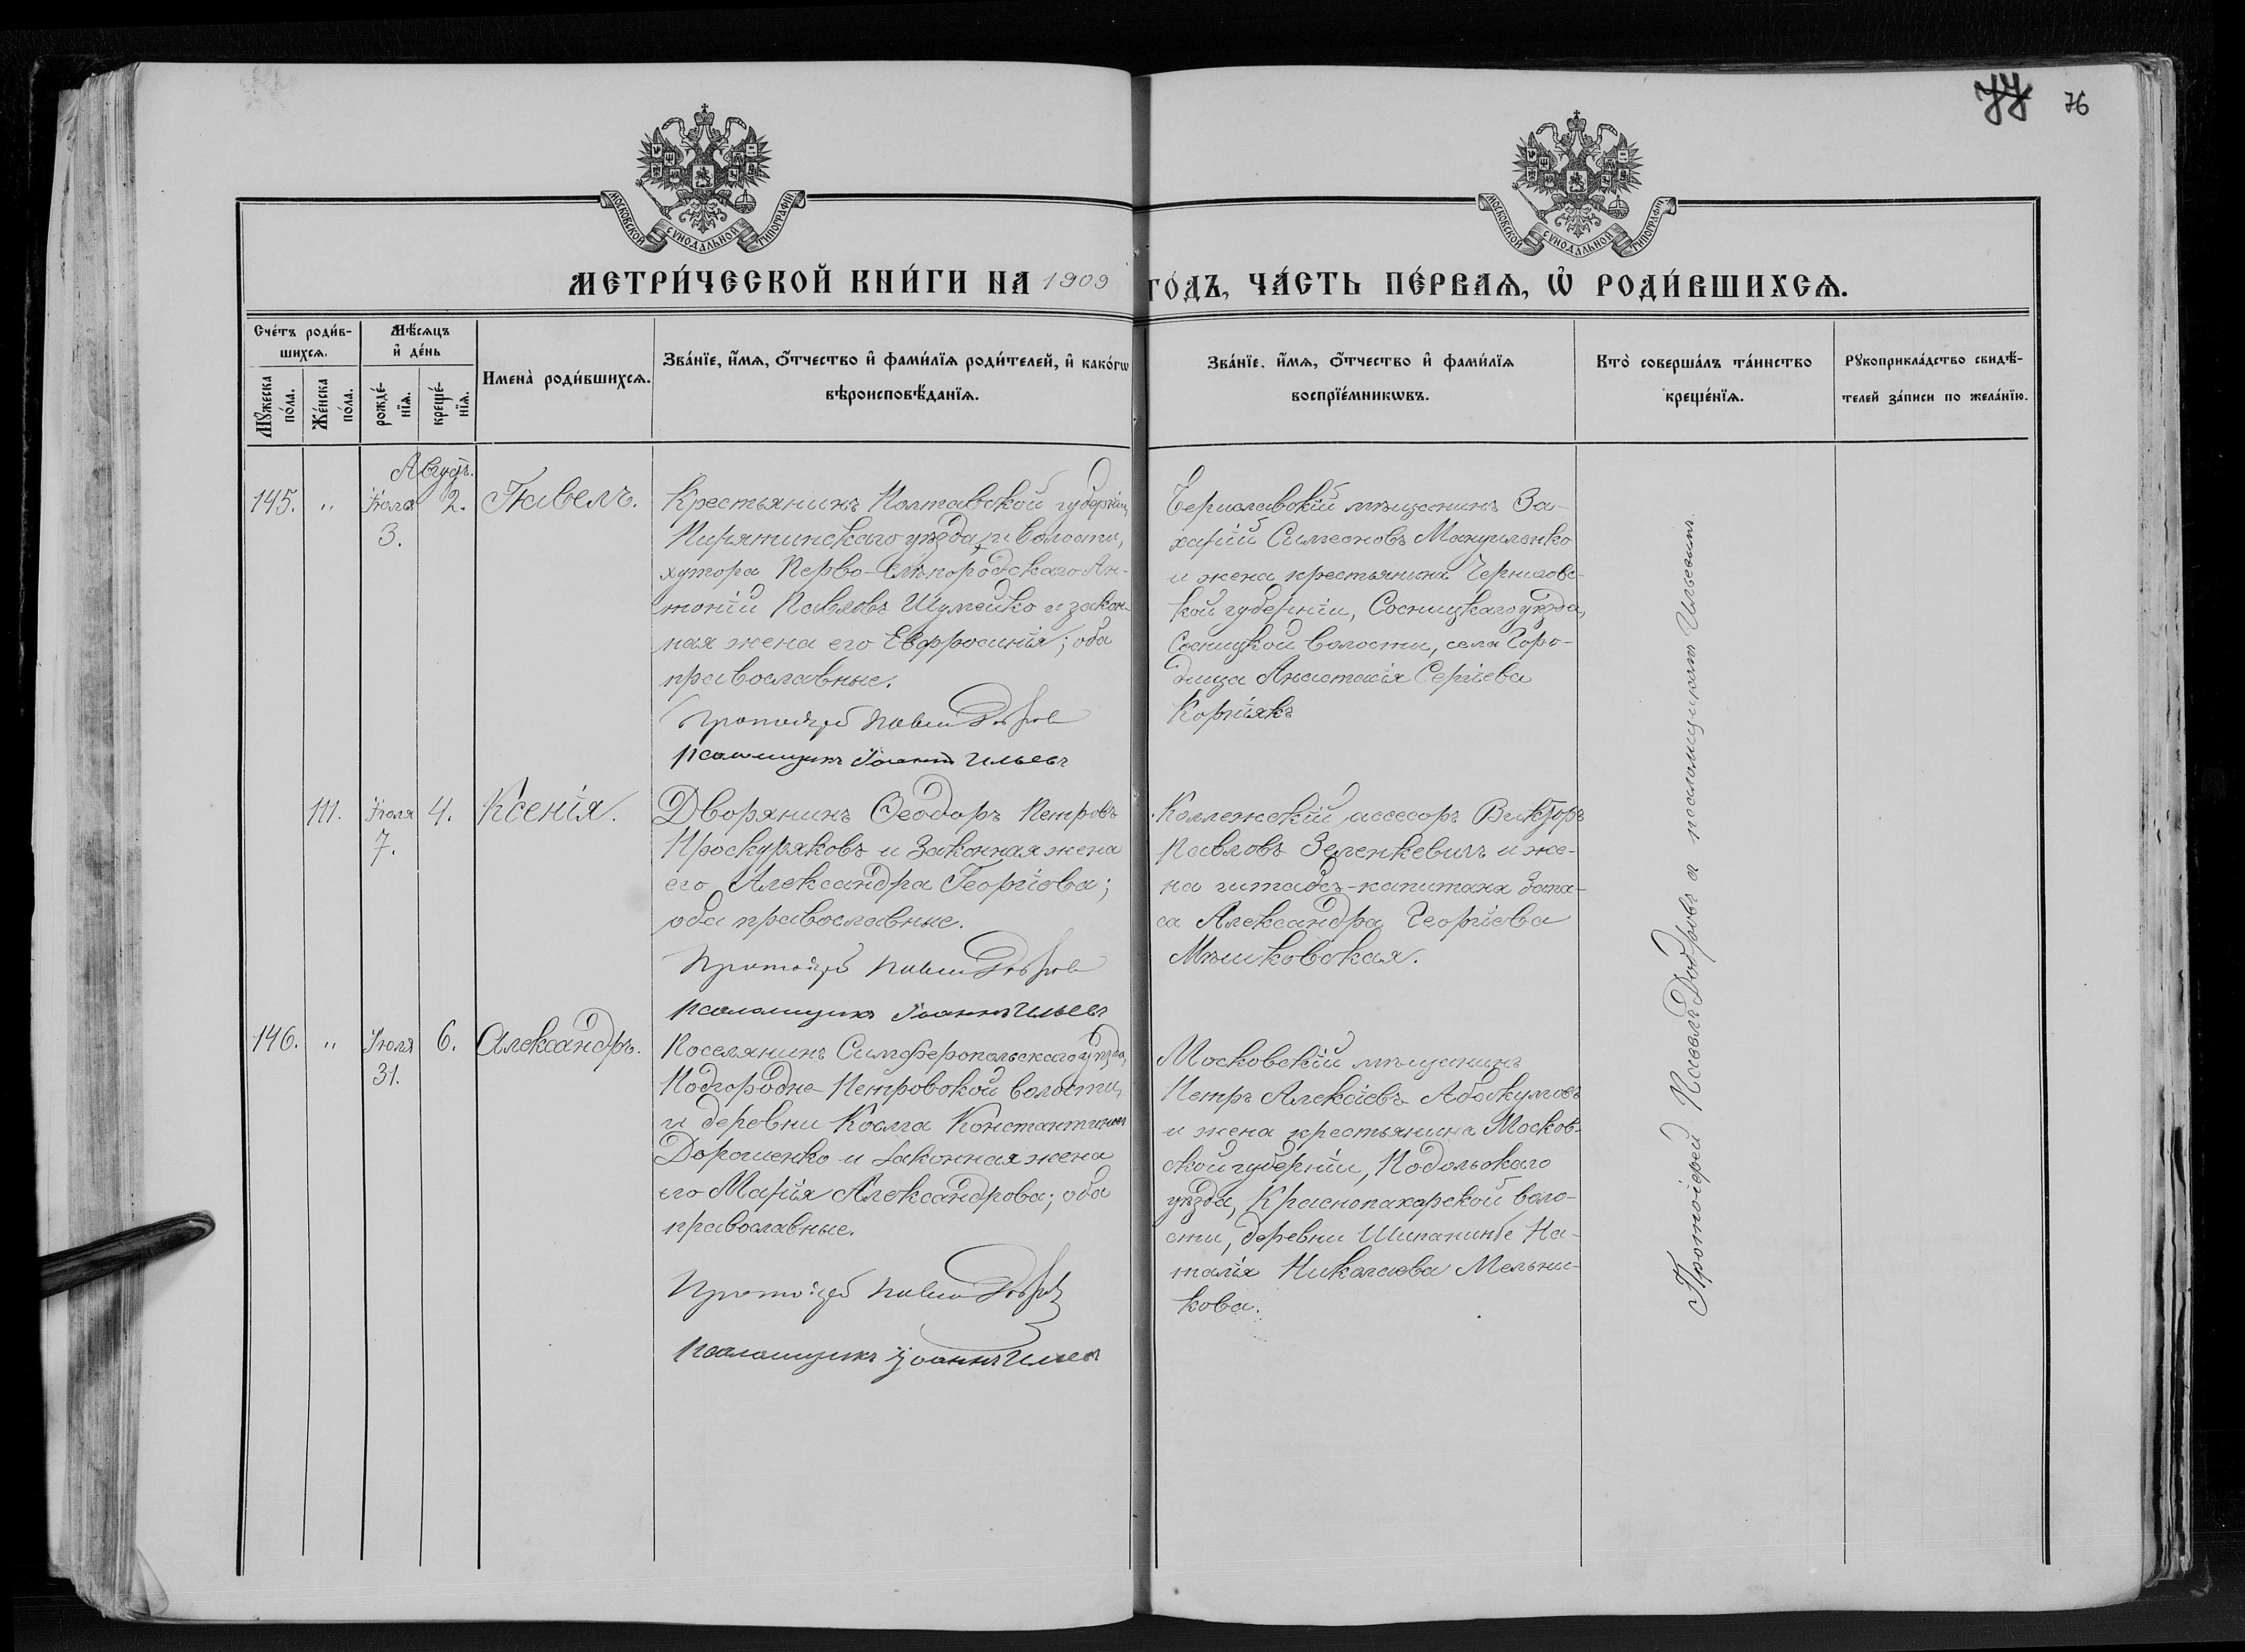 77 76
МОСКОВСКОЙ СѴНОДАЛЬНОЙ ТИПОГРАФІИ
МОСКОВСКОЙ СѴНОДАЛЬНОЙ ТИПОГРАФІИ
МЕТРИ́ЧЕСКОЙ КНИ́ГИ НА 1909 ГО́ДЪ, ЧА́СТЬ ПЕ́РВАѦ, Ѡ҆ РОДИ́ВШИХСѦ.
Сче́тъ роди́в-
шихсѧ.
Мꙋ́жеска по́ла.
Же́нска по́ла.
Мѣ́сѧцъ и҆ де́нь
рожде́-
нїѧ.
креще́-
нїѧ.
Имена̀ роди́вшихсѧ.
Зва́нїе, и҆́мѧ, ѻ҆́тчество и҆ фами́лїѧ роди́телей, и҆ како́гѡ
вѣроисповѣ́данїѧ.
Зва́нїе, и҆́мѧ, ѻ҆́тчество и҆ фами́лїѧ
воспрїе́мникѡвъ.
Кто̀ соверша́лъ та́инство
креще́нїѧ.
Рꙋкоприкла́дство свидѣ́-
телей за́писи по жела́нїю.
Августъ.
145. " Іюля 3. 2. Павелъ.
Крестьянинъ Полтавской губерніи,
Пирятинскаго уѣзда и волости,
хутора Перво-
Ан-
тоній Павловъ Шумейко и закон-
ная жена его Евфросинія; оба
православные.
Протоіерей Павелъ Добровъ
Псаломщикъ Іоаннъ Ильевъ
Бериславскій мѣщанинъ За-
харій Симеоновъ Мануиленко
и жена крестьянина Чернигов-
кой губерніи, Сосницкаго уѣзда,
Сосницкой волости, села Горо-
дища Анастасія Сергіева
Корніякъ
111. Іюля 7. 4. Ксенія.
Дворянинъ Ѳеодоръ Петровъ
Проскуряковъ и законная жена
его Александра Георгіева;
оба православные.
Протоіерей Павелъ Добровъ
Псаломщикъ Іоаннъ Ильевъ
Коллежскій ассесоръ Викторъ
Павловъ Зеленкевичъ и же-
на штабсъ-капитана запа-
са Александра Георгіева
Мѣшковская.
146. " Іюля 31. 6. Александръ.
Поселянинъ Симферопольскаго уѣзда,
Подгородне-Петровской волости,
и деревни Косма Константиновъ
Дорошенко и законная жена
его Марія Александрова; оба
православные.
Протоіерей Павелъ Добровъ
Псаломщикъ Іоаннъ Ильевъ
Московскій мѣщанинъ
Петръ Алексіевъ Абоскумовъ
и жена крестьянина Москов-
ской губерніи, Подольскаго
уѣзда, Краснопахарской воло-
сти, деревни Шипанинбе На-
талія Николаева Мельни-
кова.
Протоіерей Павелъ Добровъ а псаломщикъ Ильевымъ.